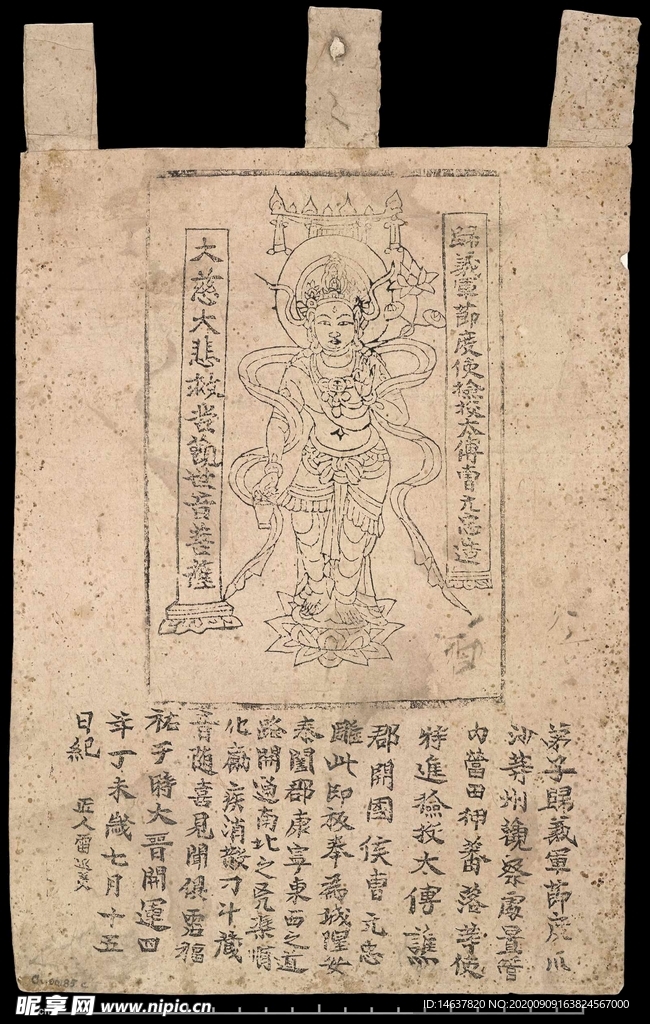 歸義軍節度使檢挍太傅曹元忠造
大慈大悲救苦觀世音菩薩
弟子歸義軍節度瓜
沙等州觀察處置管
内營田押蕃落等使
特進檢挍太傅譙
郡開國侯曹元忠
雕此印板奉為城隍安
泰闔郡康寧東西之道
路開通南北之兇渠順
化勵疾消散刁斗藏
音随喜見聞俱霑福
祐于時大晉開運四
年丁未歲七月十五
日紀
匠人雷延美
昵享网 www.nipic.cn
ID:14637820 NO:20200909163824567000